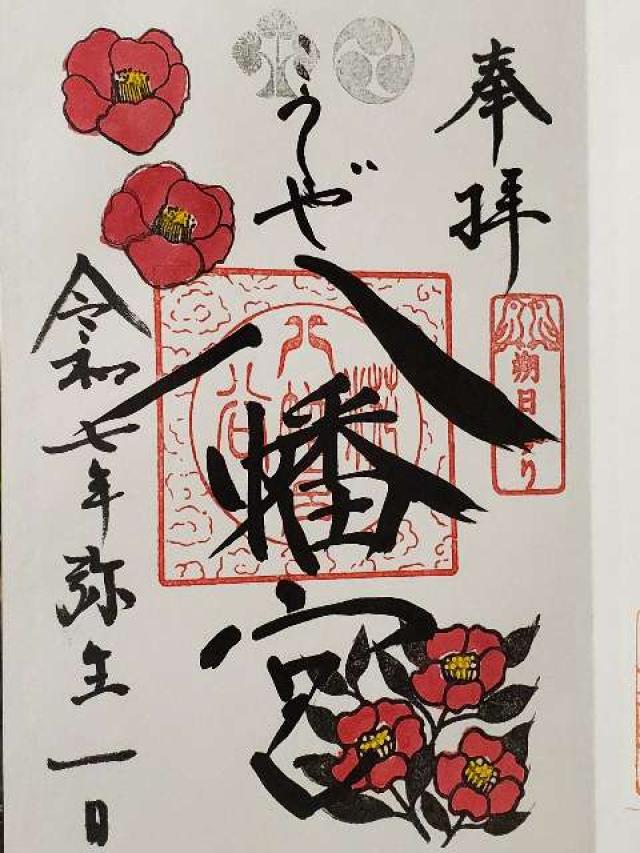 奉拝
朔日まいり
八幡宮
令和七年弥生一日